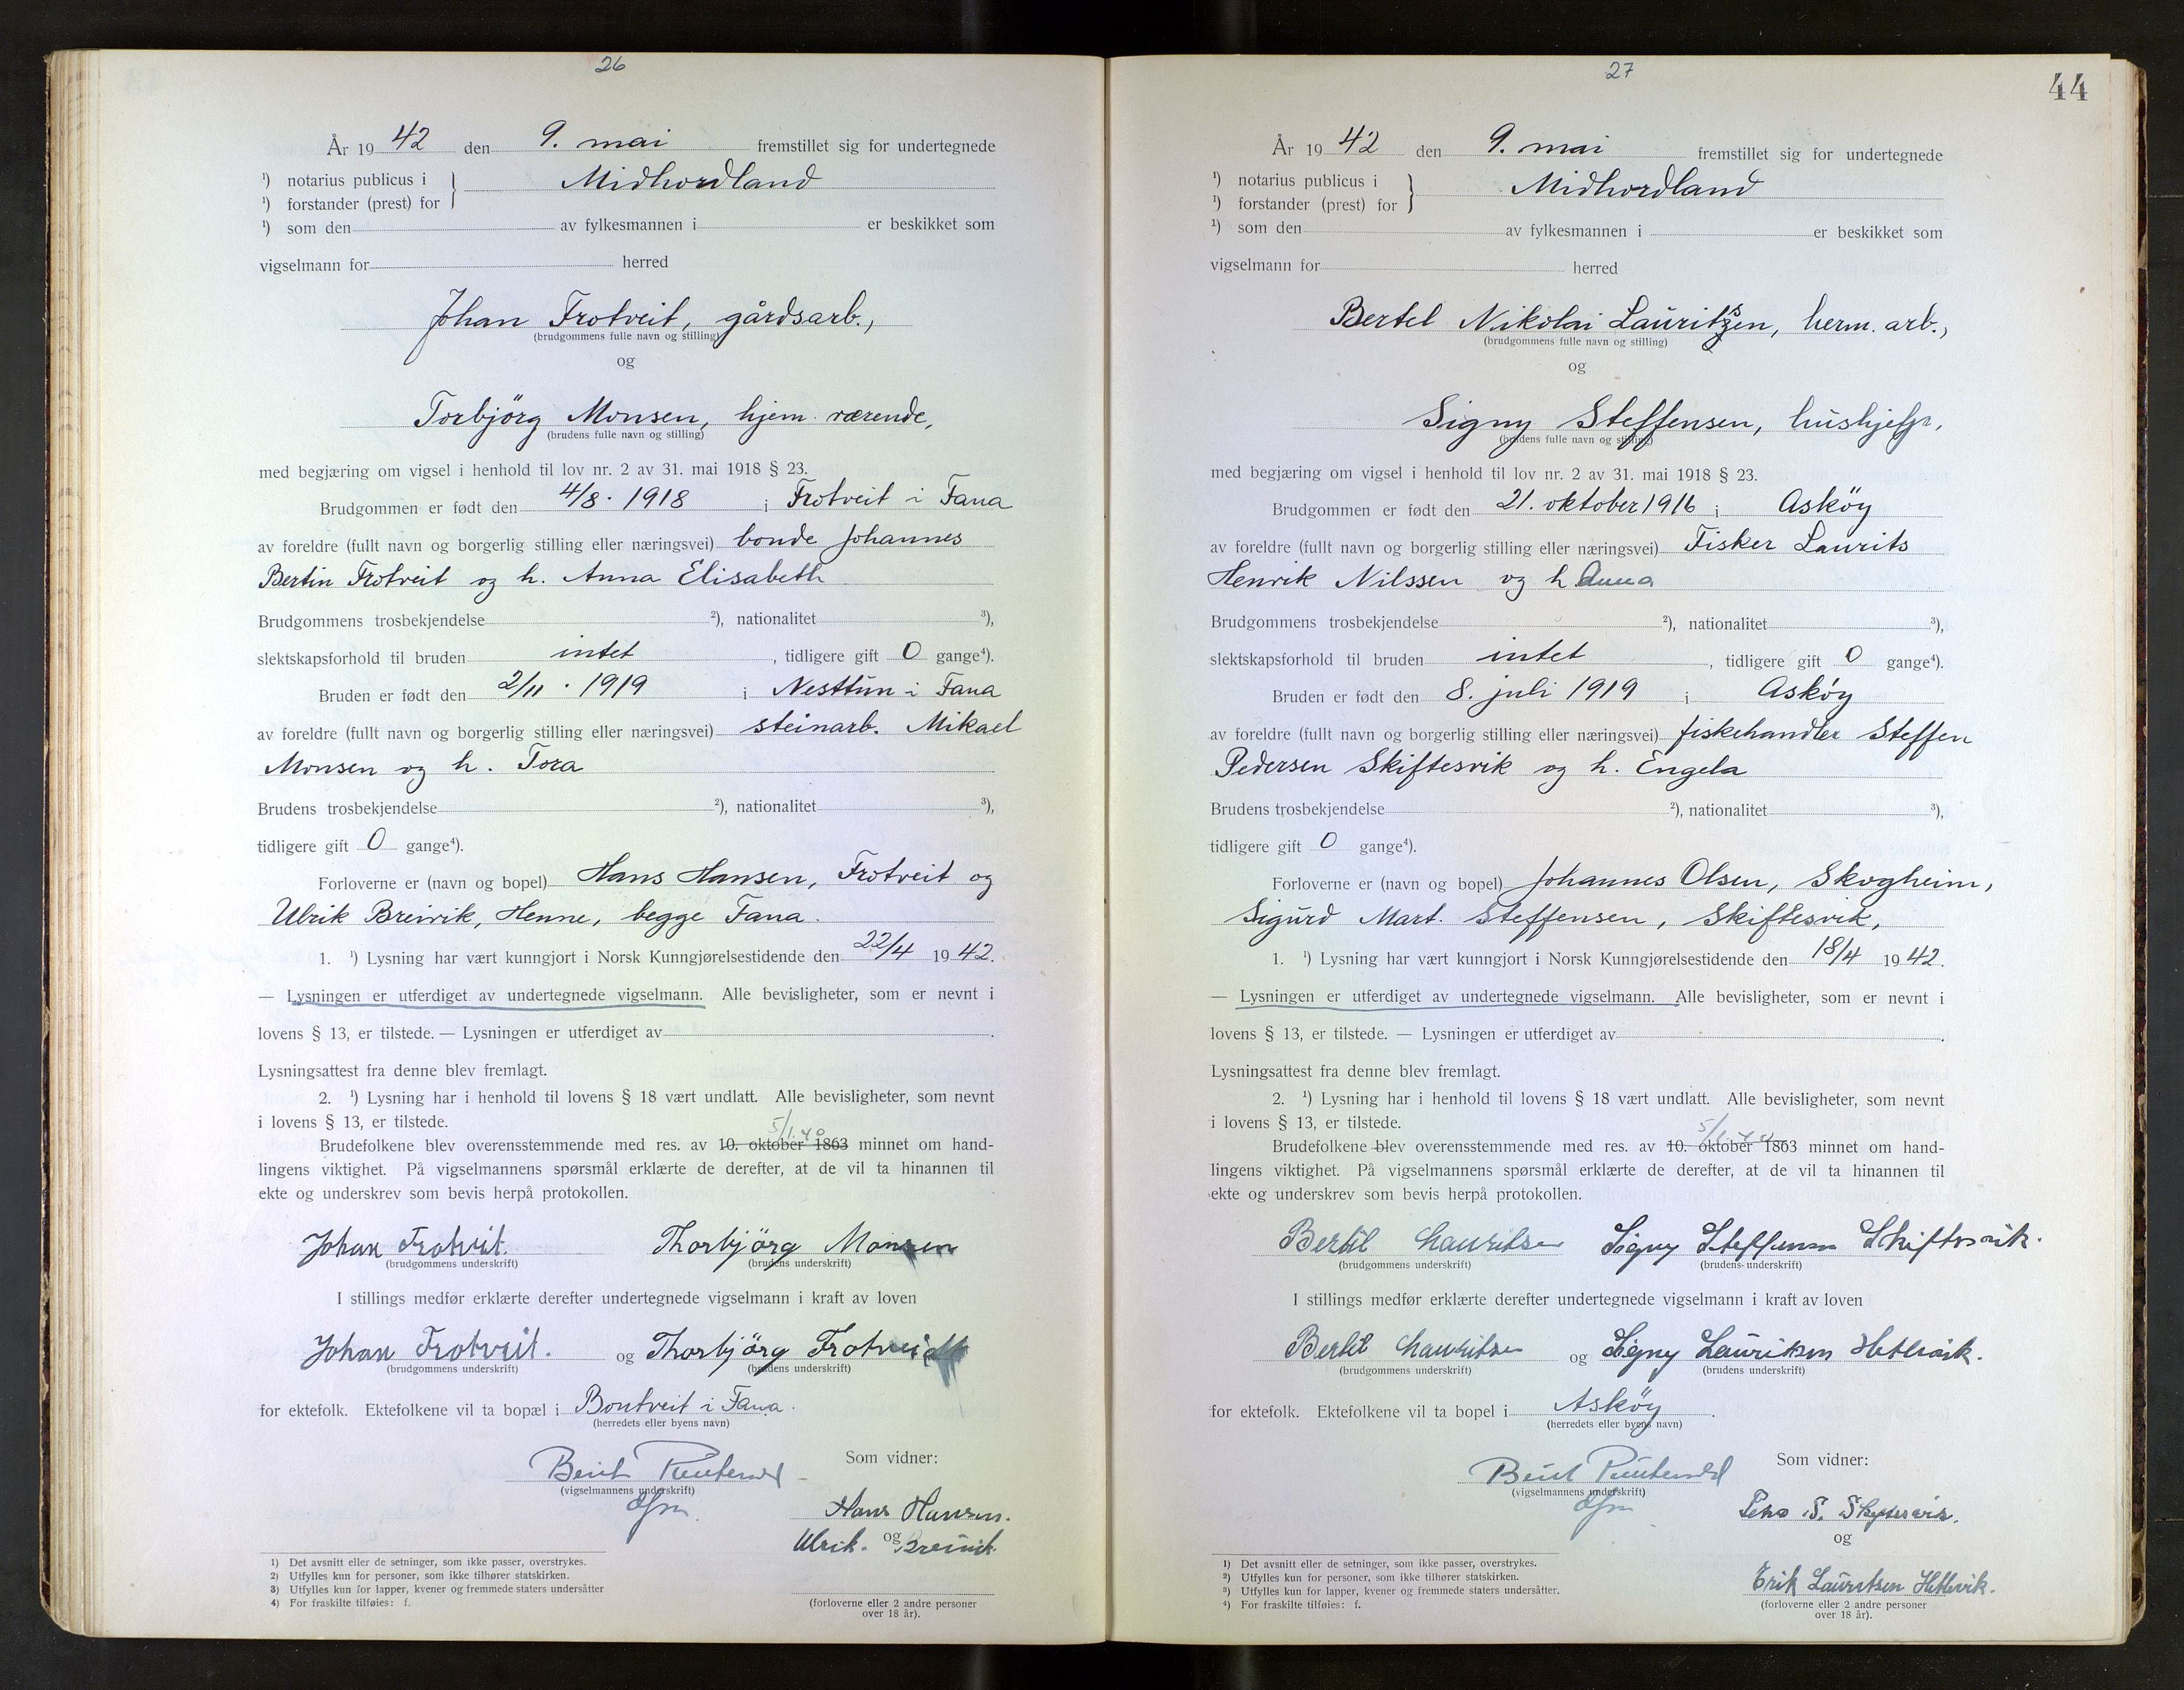 26
År 19 42 den 9. mai fremstillet sig for undertegnede
¹) notarius publicus i } Midhordland
¹) forstander (prest) for
¹) som den av fylkesmannen i er beskikket som
vigselmann for herred
Johan Frotveit, gårdsarb.,
(brudgommens fulle navn og stilling)
og
Torbjörg Monsen, hjem. værende,
(brudens fulle navn og stilling)
med begjæring om vigsel i henhold til lov nr. 2 av 31. mai 1918 § 23.
Brudgommen er født den 4/8. 1918 i Frotveit i Fana
av foreldre (fullt navn og borgerlig stilling eller næringsvei) bonde Johannes
Bertin Frotveit og h. Anna Elisabeth
Brudgommens trosbekjendelse ²), nationalitet ³),
slektskapsforhold til bruden intet, tidligere gift 0 gange⁴).
Bruden er født den 2/11. 1919 i Nesttun i Fana
av foreldre (fullt navn og borgerlig stilling eller næringsvei) steinarb. Mikael
Monsen og h. Tora
Brudens trosbekjendelse ²), nationalitet ³),
tidligere gift 0 gange⁴).
Forloverne er (navn og bopel) Hans Hansen, Frotveit og
Ulrik Breivik, Henne, begge Fana.
1. ¹) Lysning har vært kunngjort i Norsk Kunngjørelsestidende den 22/4 19 42.
— Lysningen er utferdiget av undertegnede vigselmann. Alle bevisligheter, som er nevnt i
lovens § 13, er tilstede. — Lysningen er utferdiget av .
Lysningsattest fra denne blev fremlagt.
2. ¹) Lysning har i henhold til lovens § 18 vært undlatt. Alle bevisligheter, som nevnt
i lovens § 13, er tilstede.
5/1.40
Brudefolkene blev overensstemmende med res. av 10. oktober 1863 minnet om hand-
lingens viktighet. På vigselmannens spørsmål erklærte de derefter, at de vil ta hinannen til
ekte og underskrev som bevis herpå protokollen.
Johan Frotveit. Thorbjörg Monsen
(brudgommens underskrift) (brudens underskrift)
I stillings medfør erklærte derefter undertegnede vigselmann i kraft av loven
Johan Frotveit. og Thorbjörg Frotveidt
(brudgommens underskrift) (brudens underskrift)
for ektefolk. Ektefolkene vil ta bopæl i Bontveit i Fana.
(herredets eller byens navn)
Som vidner:
(vigselmannens underskrift)
Hans Hansen.
Ulrik. og Breivik
1) Det avsnitt eller de setninger, som ikke passer, overstrykes.
2) Utfylles kun for personer, som ikke tilhører statskirken.
3) Utfylles kun for lapper, kvener og fremmede staters undersåtter
4) For fraskilte tilføies: f.
(forloverne eller 2 andre personer
over 18 år).
27
44
År 19 42 den 9. mai fremstillet sig for undertegnede
¹) notarius publicus i } Midhordland
¹) forstander (prest) for
¹) som den av fylkesmannen i er beskikket som
vigselmann for herred
Bertel Nikolai Lauritsen, herm. arb.,
(brudgommens fulle navn og stilling)
og
Signy Steffensen, hushjelp,
(brudens fulle navn og stilling)
med begjæring om vigsel i henhold til lov nr. 2 av 31. mai 1918 § 23.
Brudgommen er født den 21. oktober 1916 i Asköy
av foreldre (fullt navn og borgerlig stilling eller næringsvei) Fisker Laurits
Henrik Nilssen og h Anna
Brudgommens trosbekjendelse ²), nationalitet ³),
slektskapsforhold til bruden intet, tidligere gift 0 gange⁴).
Bruden er født den 8. juli 1919 i Asköy
av foreldre (fullt navn og borgerlig stilling eller næringsvei) fiskehandler Steffen
Pedersen Skiftesvik og h. Engela
Brudens trosbekjendelse ²), nationalitet ³),
tidligere gift 0 gange⁴).
Forloverne er (navn og bopel) Johannes Olsen, Skogheim,
Sigurd Mart. Steffensen, Skiftesvik,
1. ¹) Lysning har vært kunngjort i Norsk Kunngjørelsestidende den 18/4 19 42.
— Lysningen er utferdiget av undertegnede vigselmann. Alle bevisligheter, som er nevnt i
lovens § 13, er tilstede. — Lysningen er utferdiget av .
Lysningsattest fra denne blev fremlagt.
2. ¹) Lysning har i henhold til lovens § 18 vært undlatt. Alle bevisligheter, som nevnt
i lovens § 13, er tilstede.
5/1.40
Brudefolkene blev overensstemmende med res. av 10. oktober 1863 minnet om hand-
lingens viktighet. På vigselmannens spørsmål erklærte de derefter, at de vil ta hinannen til
ekte og underskrev som bevis herpå protokollen.
Bertil Lauritsen Signy Steffensen Skiftesvik.
(brudgommens underskrift) (brudens underskrift)
I stillings medfør erklærte derefter undertegnede vigselmann i kraft av loven
Bertil Lauritsen og Signy Lauritsen Hetlevik.
(brudgommens underskrift) (brudens underskrift)
for ektefolk. Ektefolkene vil ta bopel i Asköy.
(herredets eller byens navn)
Som vidner:
(vigselmannens underskrift)
S.
og
Erik Lauritsen Hetlevik.
1) Det avsnitt eller de setninger, som ikke passer, overstrykes.
2) Utfylles kun for personer, som ikke tilhører statskirken.
³) Utfylles kun for lapper, kvener og fremmede staters undersåtter.
⁴) For fraskilte tilføies: f.
(forloverne eller 2 andre personer
over 18 år).